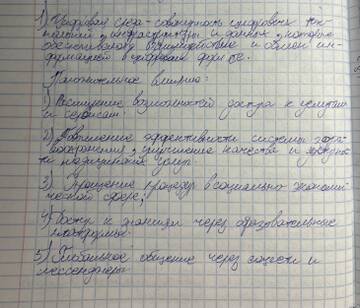 1) Цифровая среда - совокупность цифровых тех-
нологий, инфраструктуры и данных, которые
обеспечивают взаимодействие и обмен ин-
формацией в цифровой форме.
Положительное влияние:
1) Расширение возможностей доступа к услугам
и сервисам;
2) Повышение эффективности системы здра-
воохранения, улучшение качества и доступнос-
ти медицинских услуг
3) Упрощение процедур в социально-экономи-
ческой сфере;
4) Доступ к знаниям через образовательные
платформы.
5) Глобальное общение через соцсети и
мессенджеры